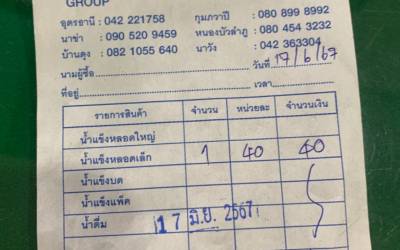 GROUP
อุดรธานี : 042 221758 กุมภวาปี : 080 899 8992
นาข่า : 090 520 9459 หนองบัวลำภู : 080 454 3232
บ้านดุง : 082 1055 640 นาวัง : 042 363304
นามผู้ซื้อ วันที่ 17/6/67
ที่อยู่ เวลา
รายการสินค้า จำนวน หน่วยละ จำนวนเงิน
น้ำแข็งหลอดใหญ่
น้ำแข็งหลอดเล็ก 1 40 40
น้ำแข็งบด
น้ำแข็งแพ็ค
น้ำดื่ม 17 มิ.ย. 2567